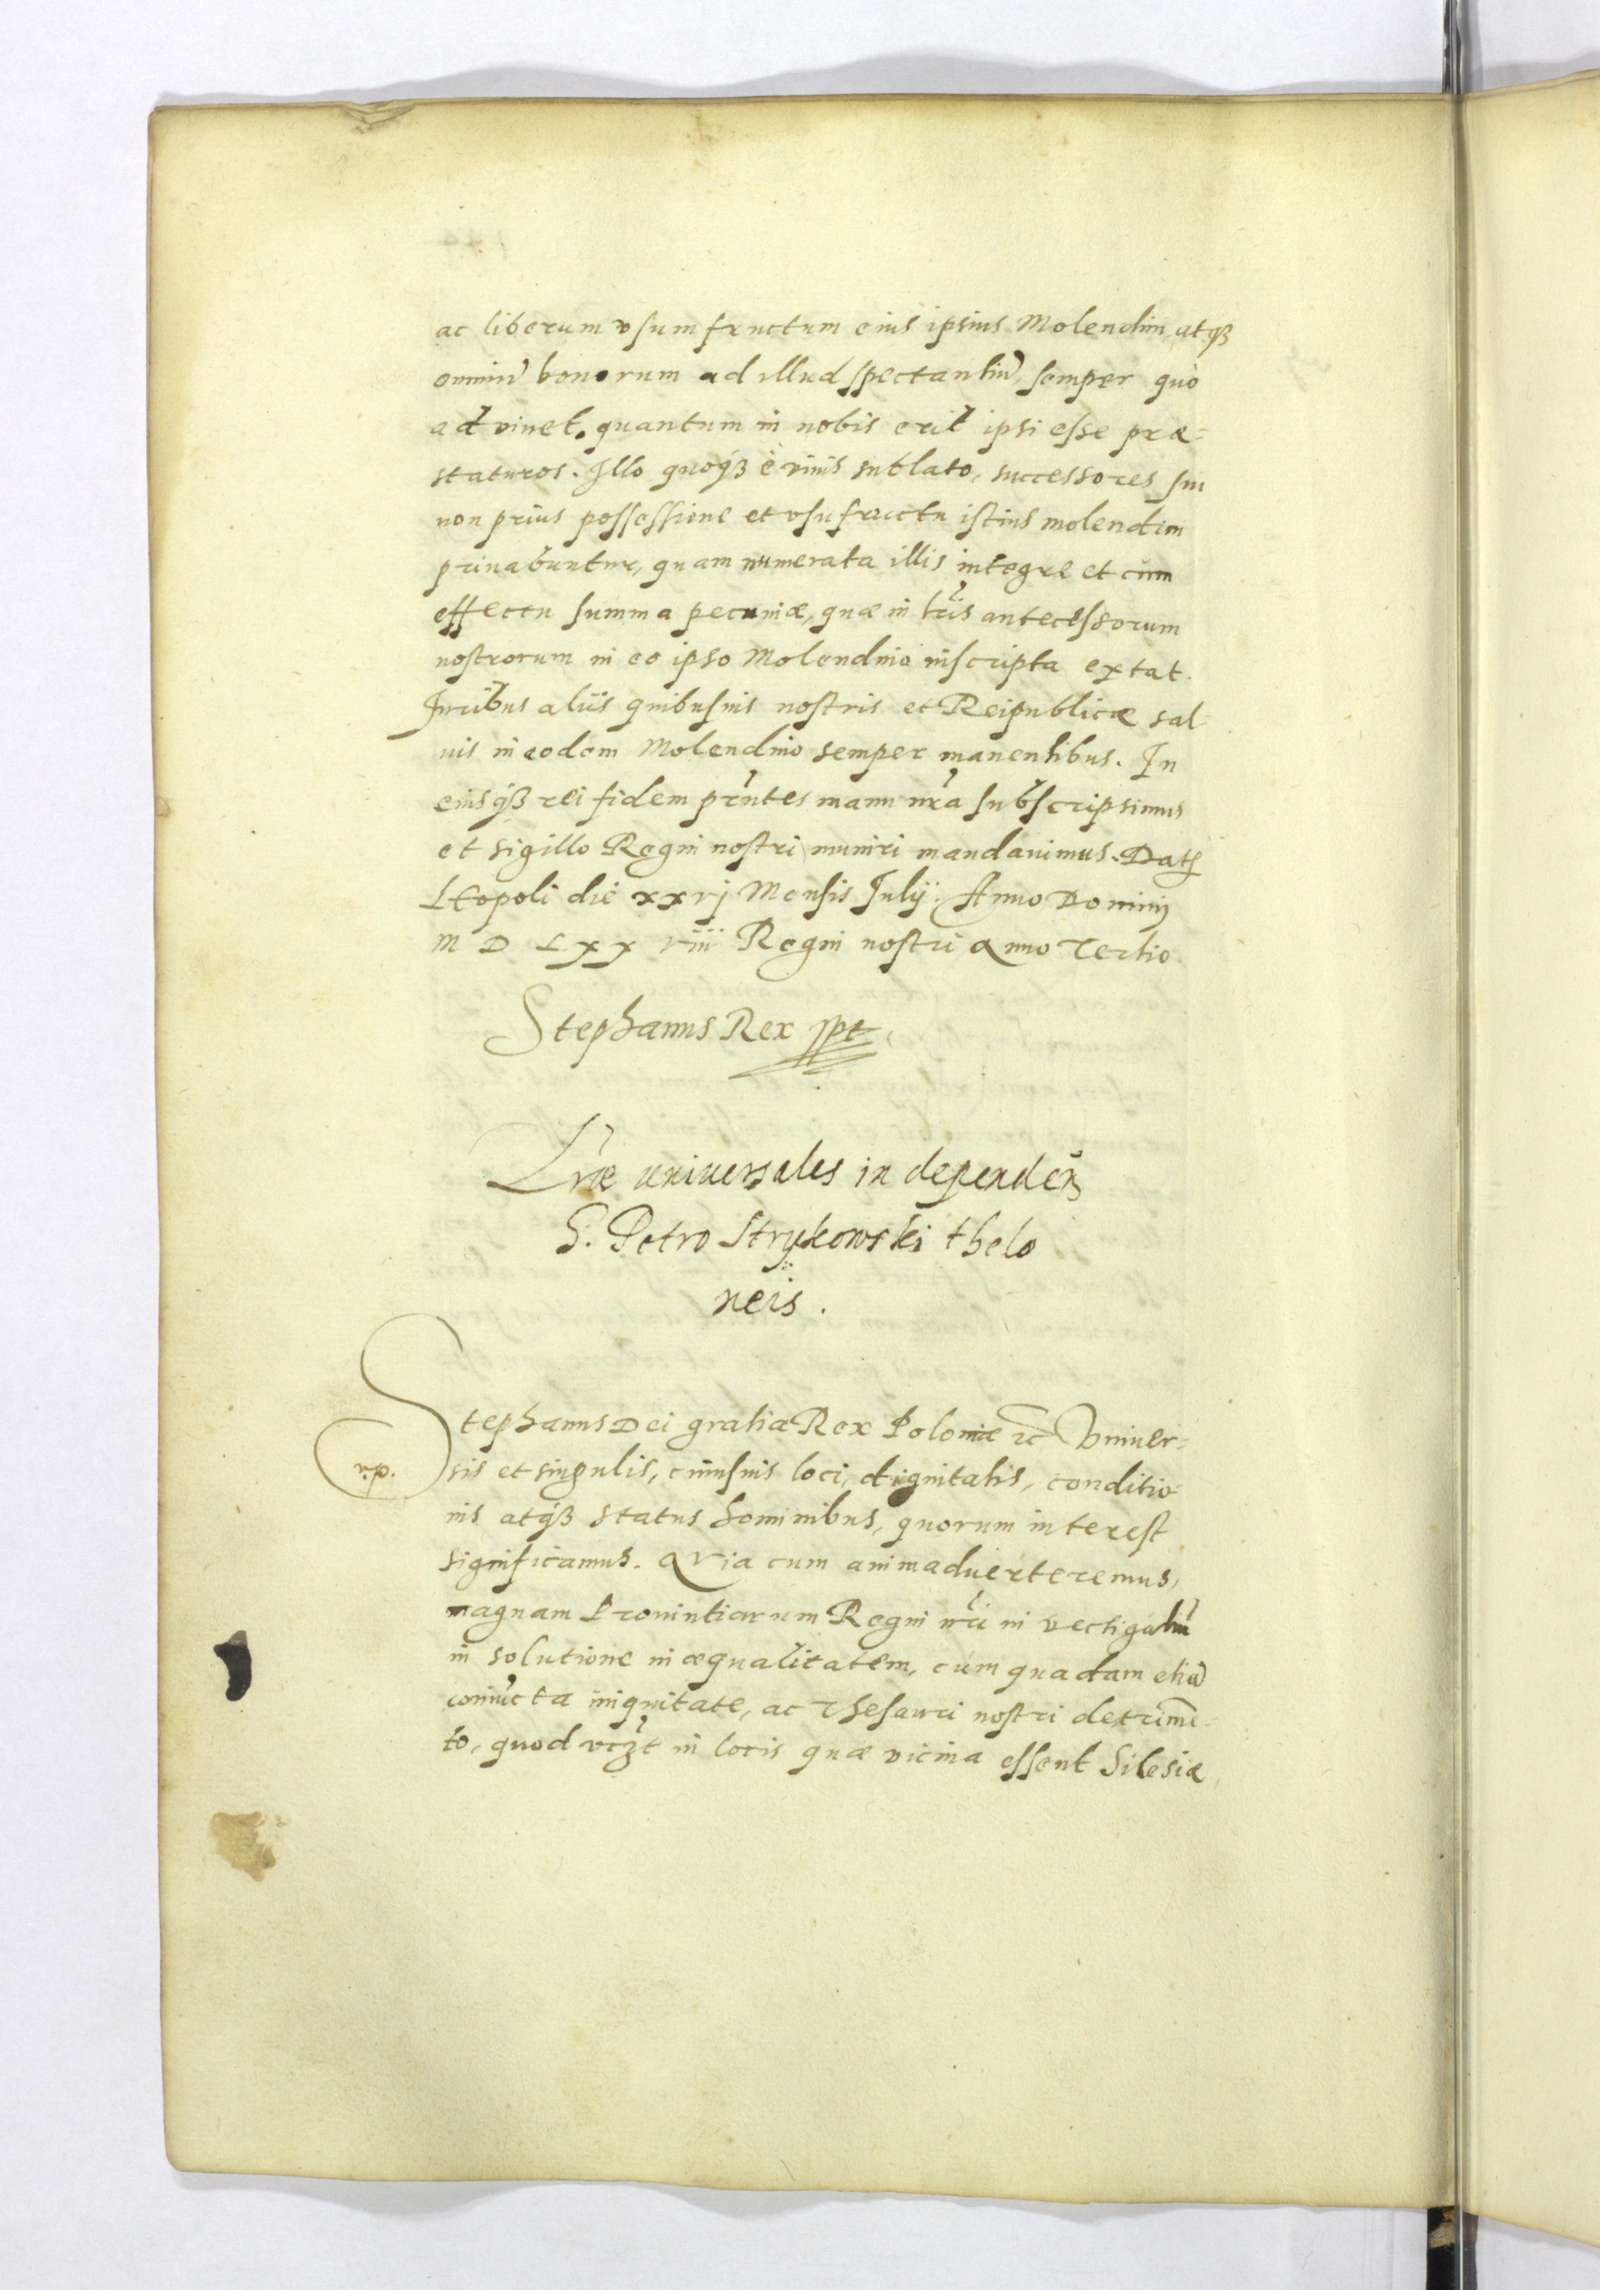 ac liberum vsumfructum eius ipsius Molendini, atqꝫ
omniũ bonorum ad illud spectantiũ, semper quò
ad viuet. quantum in nobis erit ipsi esse præ=
staturos. Illo quoqꝫ è viuis sublato, successores sui
non prius possessione et vsufructu istius molendini
priuabuntur, quam numerata illis integre et cum
effectu summa pecuniæ, quæ in lr̃is antecessorum
nostrorum in eo ipso Molendino inscripta extat.
Iuribus aliis quibusuis nostris et Reipublicæ sal
uis in eodem Molendino semper manentibus. In
eiusqꝫ rei fidem pr̃ntes manu nr̃a subscripsimus
et sigillo Regni nostri muniri mandauimus. Dat
Leopoli die xxvj Mensis Iulij. Anno Domini
M D L x x viii Regni nostri anno Tertio
Stephanus Rex sspt.
Lr̃æ vniuersales in dependeñ
G. Petro Strykowski thelo
neis.
Stephanus Dei gratia Rex Poloniæ ꝛc Vniuer=
sis et singulis, cuiusuis loci, dignitatis, conditio
nis atqꝫ status hominibus, quorum interest
significamus. Quia cum animaduerteremus,
magnam Prouintiarum Regni nr̃i in vectigaliũ
in solutione inæqualitatem, cum quadam etiã
coniũcta iniquitate, ac Thesauri nostri detrimẽ
to, quod vcꝫt in locis quæ vicina essent Silesiæ,